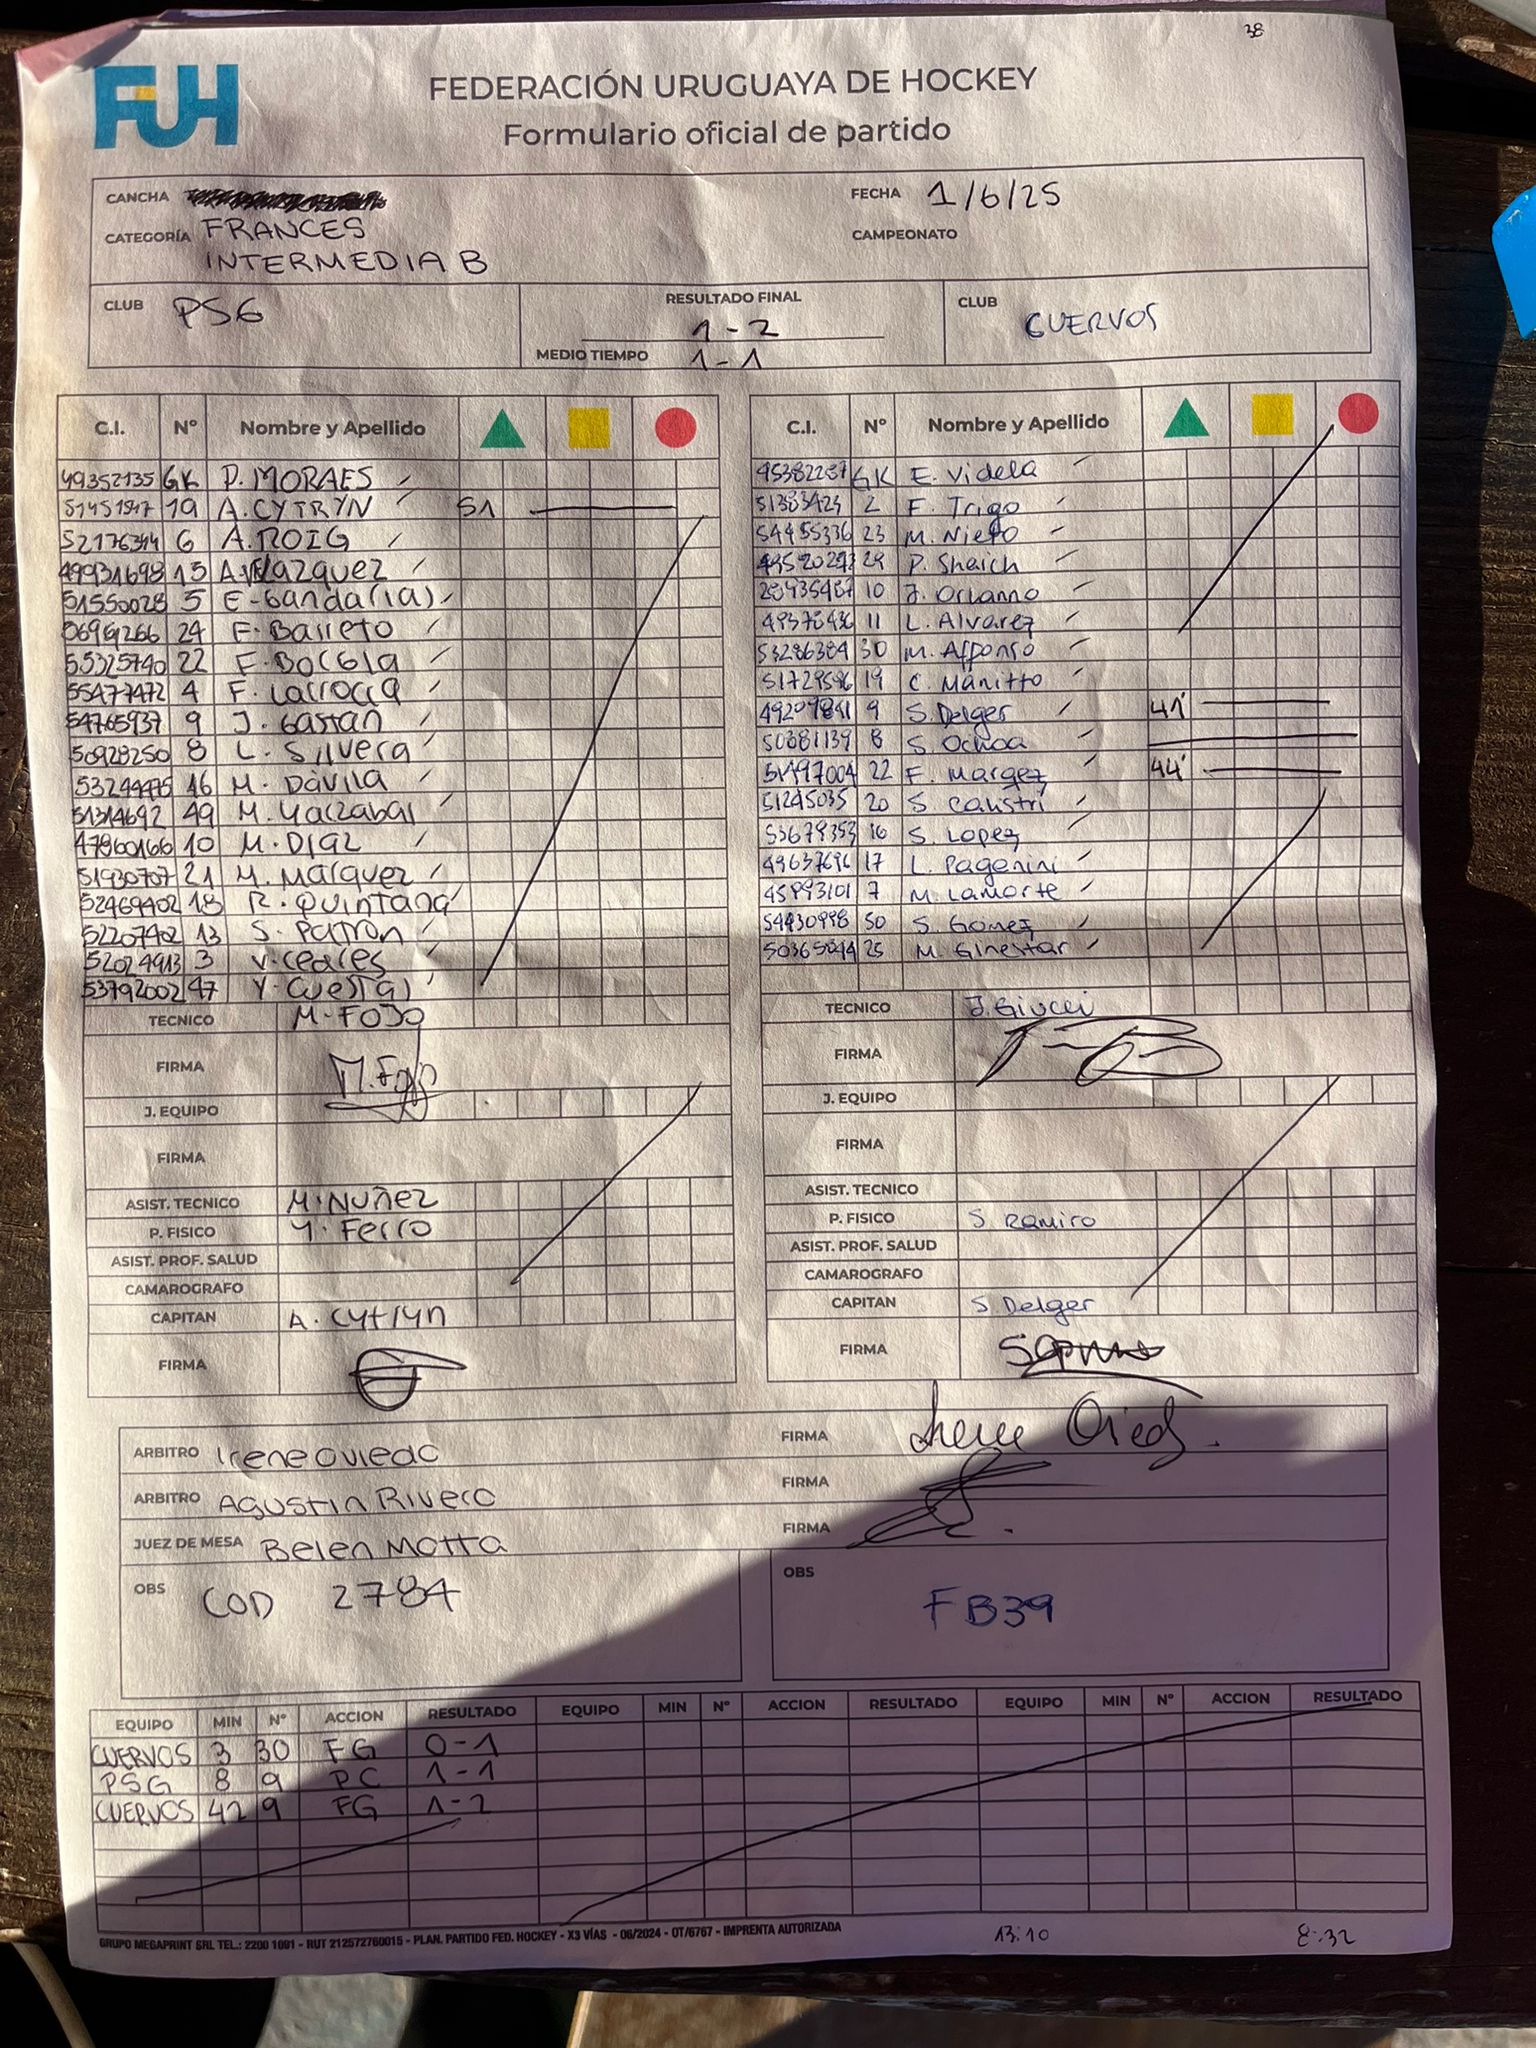 38
FUH
FEDERACIÓN URUGUAYA DE HOCKEY
Formulario oficial de partido
CANCHA
FECHA 1/6/25
CATEGORÍA FRANCES
CAMPEONATO
INTERMEDIA B
CLUB PSG
RESULTADO FINAL
1-2
MEDIO TIEMPO 1-1
CLUB CUERVOS
C.I. Nº Nombre y Apellido
GK P. MORAES
51451847 19 A. CYTRYN 51
52176344 6 A. ROIG
49931698 15 A. Vlazquez
51550028 5 E-Gandaria)
24 F. Barreto
55325740 22 F. Boccia
55477472 4 F. Larrocca
54765937 9 J. Gastan
50928250 8 L. Silvera
16 M. Dàvila
51314692 49 M. Yarzabal
47860166 10 M. Diaz
51930707 21 M. Marquez
52469402 18 R. Quintana
52207402 13 S. Patrón
52024913 3 V. Ceares
53792002 47 Y. Cuesta
TECNICO M. FOJO
FIRMA M. Fojo
J. EQUIPO
FIRMA
ASIST. TECNICO M. Nuñez
P. FISICO Y. Ferro
ASIST. PROF. SALUD
CAMAROGRAFO
CAPITAN A. Cytryn
FIRMA
C.I. Nº Nombre y Apellido
GK E. Videla
51383423 2 F. Trigo
54455336 23 M. Nieto
29 P. Sheich
10 J. Orlanno
49378436 11 L. Alvarez
53286384 30 M. Affonso
51729596 19 C. Manitto
9 S. Delger 41'
50381139 8 S. Ochoa
51497004 22 F. Margez 44'
51245035 20 S. Calistri
53679353 16 S. Lopez
49637696 17 L. Paganini
45993101 7 M. Lamorte
54430998 50 S. Gomez
25 M. Ginestar
TECNICO J. Giucci
FIRMA
J. EQUIPO
FIRMA
ASIST. TECNICO
P. FISICO S Ramiro
ASIST. PROF. SALUD
CAMAROGRAFO
CAPITAN S. Delger
FIRMA
ARBITRO Irene Oviedo
FIRMA Irene Oviedo.
ARBITRO Agustin Rivero
FIRMA
JUEZ DE MESA Belen Motta
FIRMA
OBS COD 2784
OBS FB39
EQUIPO MIN Nº ACCION RESULTADO EQUIPO MIN Nº ACCION RESULTADO EQUIPO MIN Nº ACCION RESULTADO
CUERVOS 3 30 FG 0-1
PSG 8 9 PC 1-1
CUERVOS 42 9 FG 1-2
GRUPO MEGAPRINT SRL TEL.: 2200 1091 - RUT 212572760015 - PLAN. PARTIDO FED. HOCKEY - X3 VÍAS - 06/2024 - OT/6767 - IMPRENTA AUTORIZADA
13:10
8:32